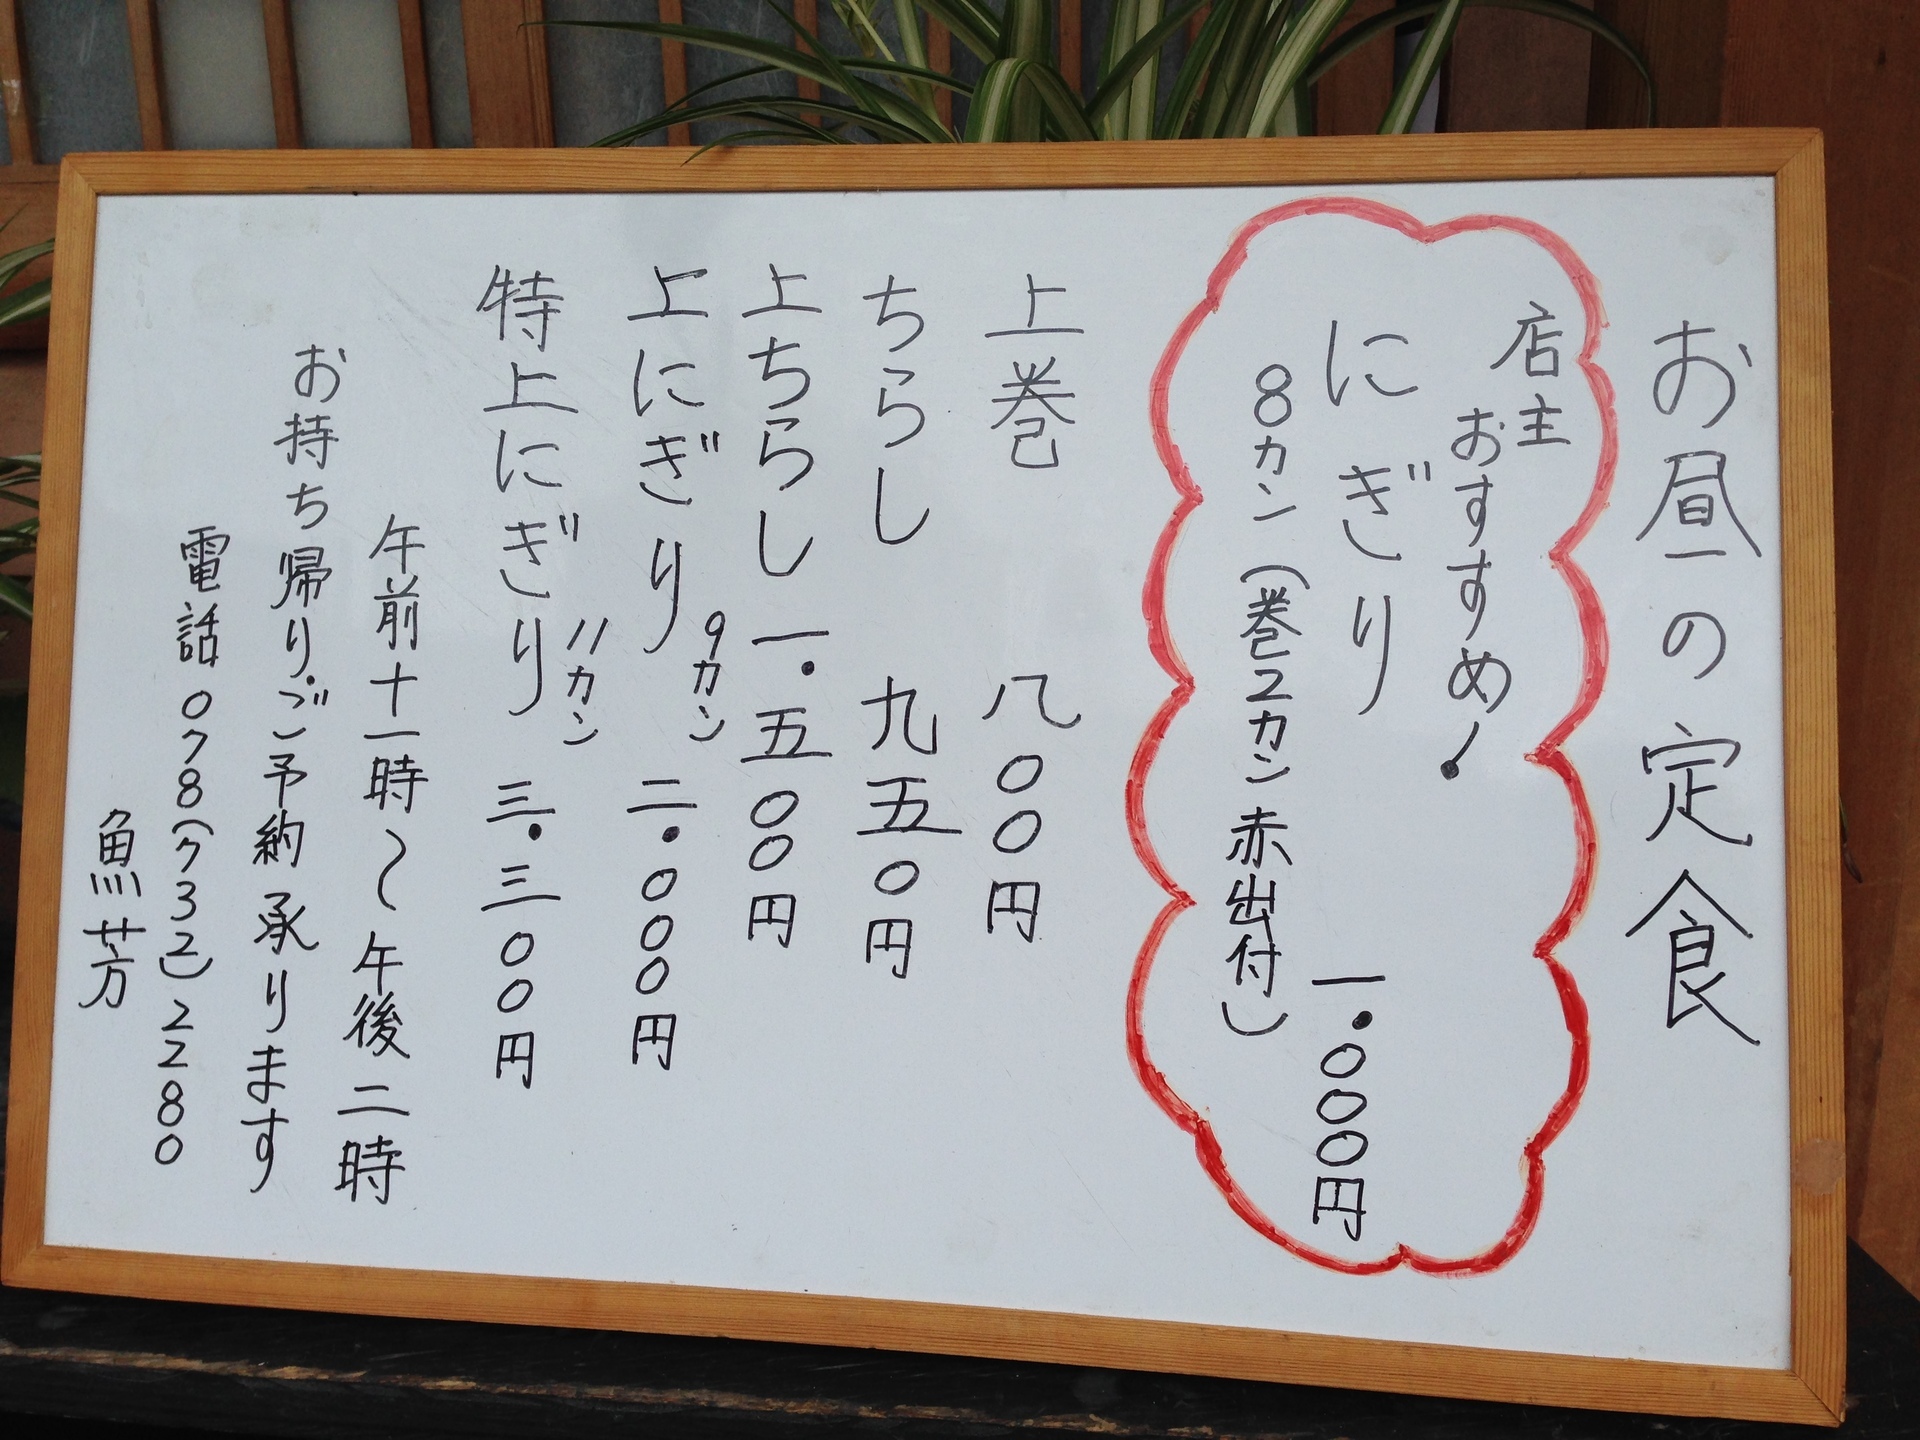 お昼の定食
店主
おすすめ!
にぎり 一.000円
8カン(巻2カン 赤出付)
上巻 八00円
ちらし 九五0円
上ちらし 一.五00円
上にぎり 9カン 二.000円
特上にぎり 11カン 三.三00円
午前十一時〜午後二時
お持ち帰りご予約承ります
電話 078(732)2280
魚芳